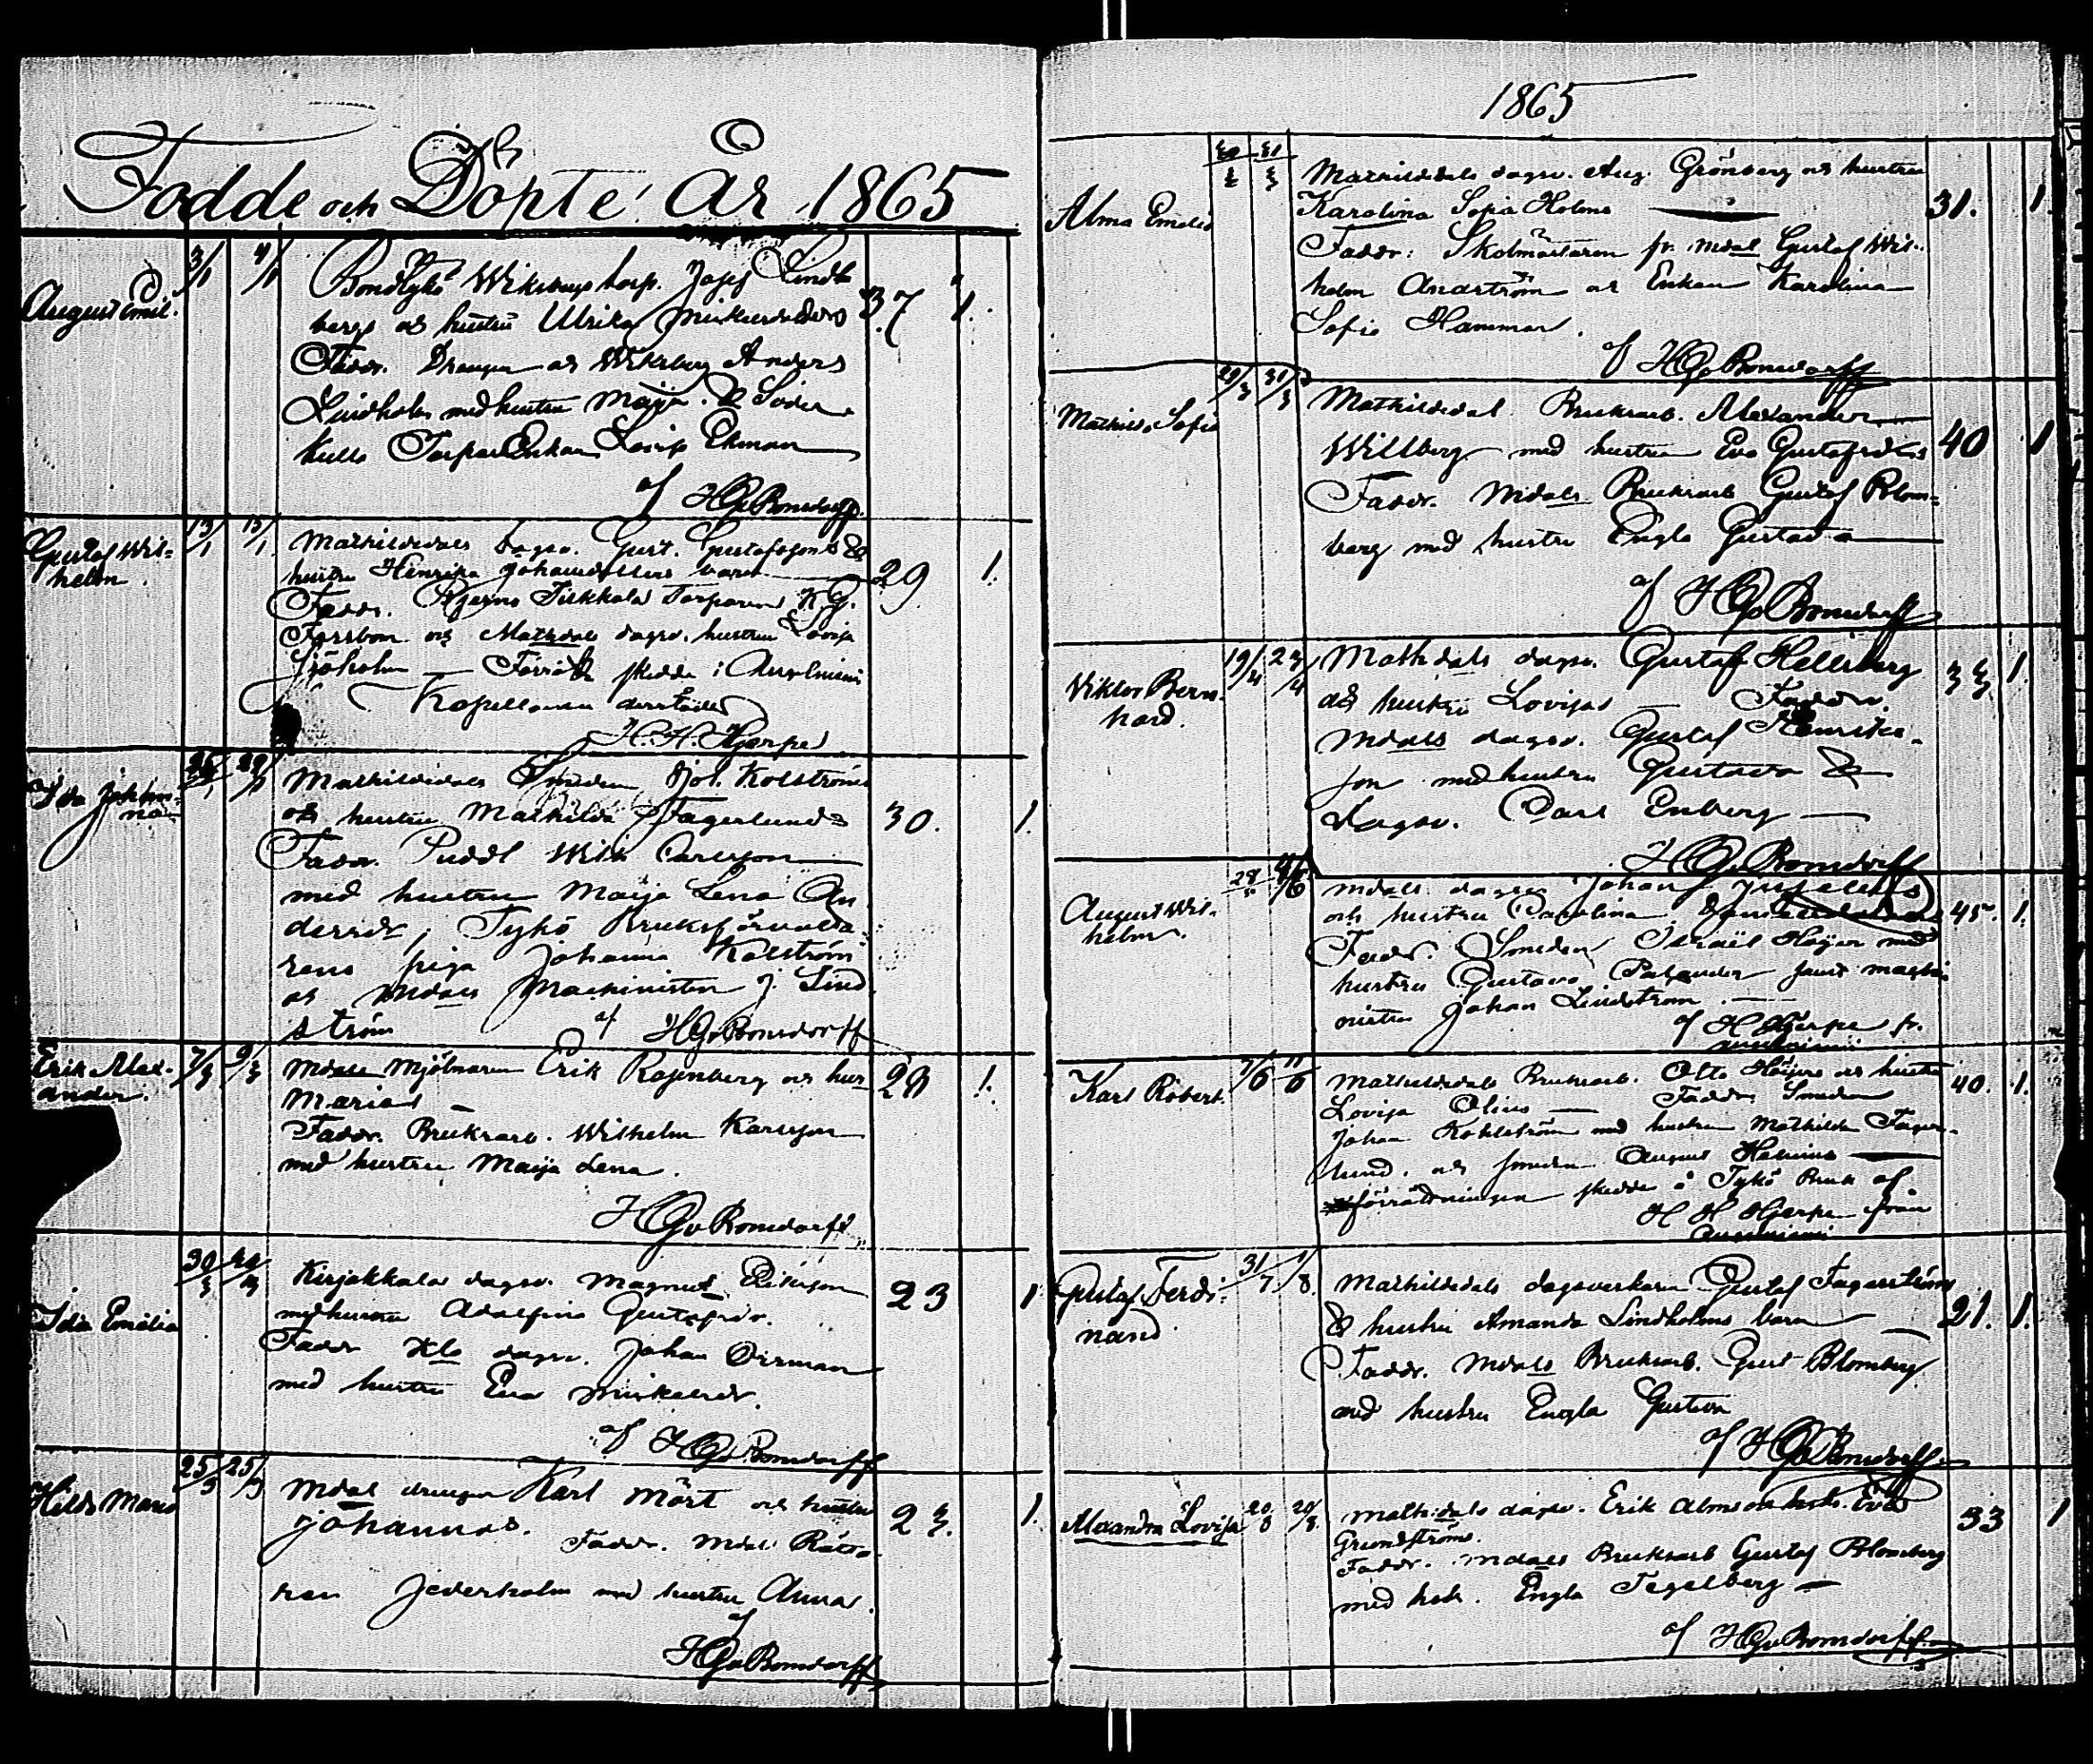 Födde och Döpte År 1865
August Emil. 3/1 4/1 Bondtykö Wiksbergs torp. Josef Lind
bergs och hustru Ulrika 37 1.
Fadd. Drengen å Wiksberg Anders
Lindholm med hustru Maija. & Söder
kulla Torpare Enkan Lovisa Ekman
af HGvBonsdorff.
Gustaf Wil= 13/1 15/1 Mathildedals dagsv. Gust. Gustafssons &
helm. hustru Henrika barn 29 1.
Fadd. Torparen K G.
Forsbom och Mathdals dagsv. hustru Lovisa
Sjöholm — skedde i
Kapellanen derstädes
H. H. Hjerpe
Ida Johan= 29/1 Mathildedals Smeden Joh. Kolströms
na och hustru Mathilda Fagerlunds 30. 1.
Fadd. Puddl Wilh Carlsson
med hustru Maija Lena An
dersdr, Tykö Bruksförvalta=
rens piga Johanna Kolström
och Mdals Machinisten J. Lind
ström af HGvBonsdorff
Erik Alex= 7/3 9/3 Mdals Mjölnaren Erik Rosenberg och hus 28 1.
ander. Maria
Fadd. Bruksarb. Wilhelm Karlsson
med hustru Maija Lena.
HGvBonsdorff
Ida Emilia 30/3 Kirjakkala dagsv. Magnus Eriksson 23 1
med hustru Adolfina Gustafsdr.
Fadd Kla dagsv. Johan Öirman
med hustru Eva Mickelsdr.
af HGvBonsdorff
Hilda Maria 25/3 25/3 Mdal drengen Karl Mört och hustru 23. 1.
Johanna.
Fadd. Mdal Rätta
ren Sederholm med hustru Anna.
af
HGvBonsdorff
1865
Alma Emelia Mathildedals dagsv. Aug. Grönberg och hustru 31. 1.
Karolina Sofia Holms
Faddr: Skolmästaren fr. Mdal Gustaf Wil=
helm Andström och Enkan Karolina
Sofia Hammar.
af HGvBonsdorff
Mathilda Sofia 29/3 31/3 Mathildedal Bruksarb. Alexander
Willberg med hustru Eva Gustafsdr 40 1
Fadd. Mdals Bruksarb Gustaf Blom=
berg med hustru Engla Gustava
af HGvBonsdorff
Viktor Bern= 19/4 23/4 Mathdals dagsv. Gustaf Hellberg 33 1.
hard. och hustru Lovisa — Faddr.
Mdals dagsv. Gustaf Henriks=
son med hustru Gustava &
Dagsv. Carl Enberg
HGvBonsdorff
August Wil= Mdals dagsv Johan
helm. och hustru Carolina 45. 1.
Fadd. Smeden Israel Höijer med
hustru Gustava Palander samt maski=
nisten Johan Lindström.
af H Hjerpe fr.
Karl Robert. 7/6 11/6 Mathildedals Bruksarb. Otto Höijers och hustru 40. 1.
Lovisa Olins — Fadd: Smeden
Johan Kohlström med hustru Mathilda Fager=
lund. och smeden August Helenius
förrättningen skedde å Tykö Bruk af
H H Hjerpe från
Gustaf Ferdi= 31/7 1/8. Mathildedals dagsverkaren Gustaf Fagerströms
nand. & hustru Amanda Lindholms barn 21. 1.
Faddr. Mdals Bruksarb. Gust Blomberg
med hustru Engla Gustava
af HGvBonsdorff
Alexandra Lovisa 20/8 20/8. Mathildals dagsv. Erik Alms och hust. Eva 33 1
Grundströms.
Faddr. Mdals Bruksarb Gustaf Blomberg
med hust. Engla Tegelberg
af HGvBonsdorff.